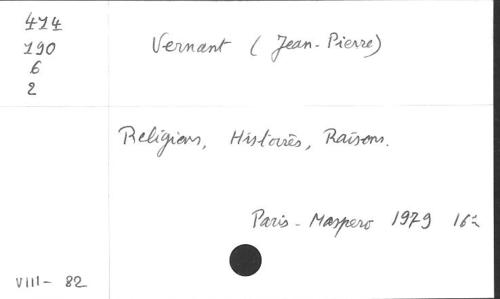 414
190
6
2
Vernant (Jean-Pierre)
Religions, Histoires, Raisons.
Paris - Maspero 1979 16°
VIII - 82